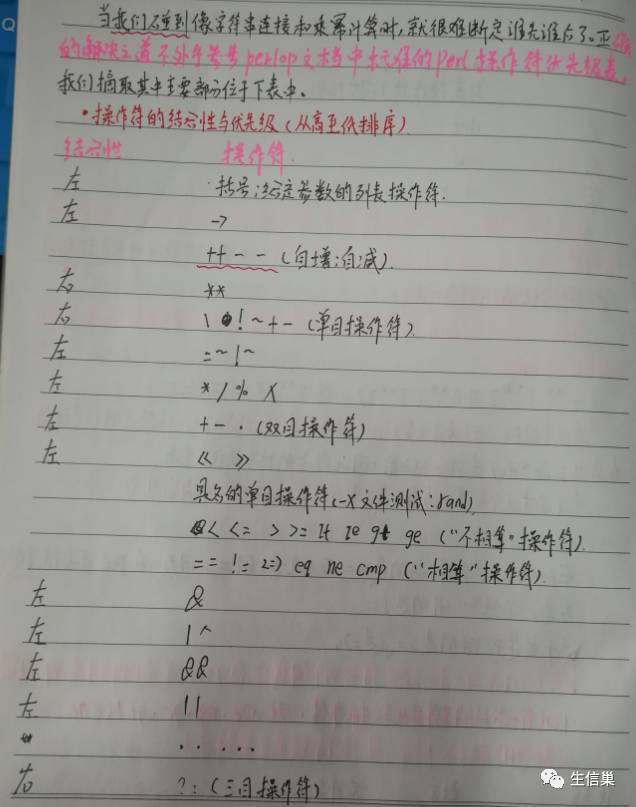 当我们碰到像字符串连接和乘幂计算时,就很难断定谁先谁后了。正
的解决之道不外乎参考perlop文档中标准的Perl操作符优先级表,
我们摘取其中主要部分位于下表中。
•操作符的结合性与优先级(从高至低排序)
结合性 操作符
左 括号;给定参数的列表操作符.
左 ->
++ -- (自增;自减).
右 **
右 \ ! ~ + - (单目操作符).
左 =~ !~
左 * / % X
左 + - . (双目操作符)
左 << >>
具名的单目操作符(-X文件测试;rand)
< <= > >= lt le gt ge ("不相等"操作符).
== != <=> eq ne cmp ("相等"操作符).
左 &
左 | ^
左 &&
左 ||
.. ...
右 ?: (三目操作符)
生信巢